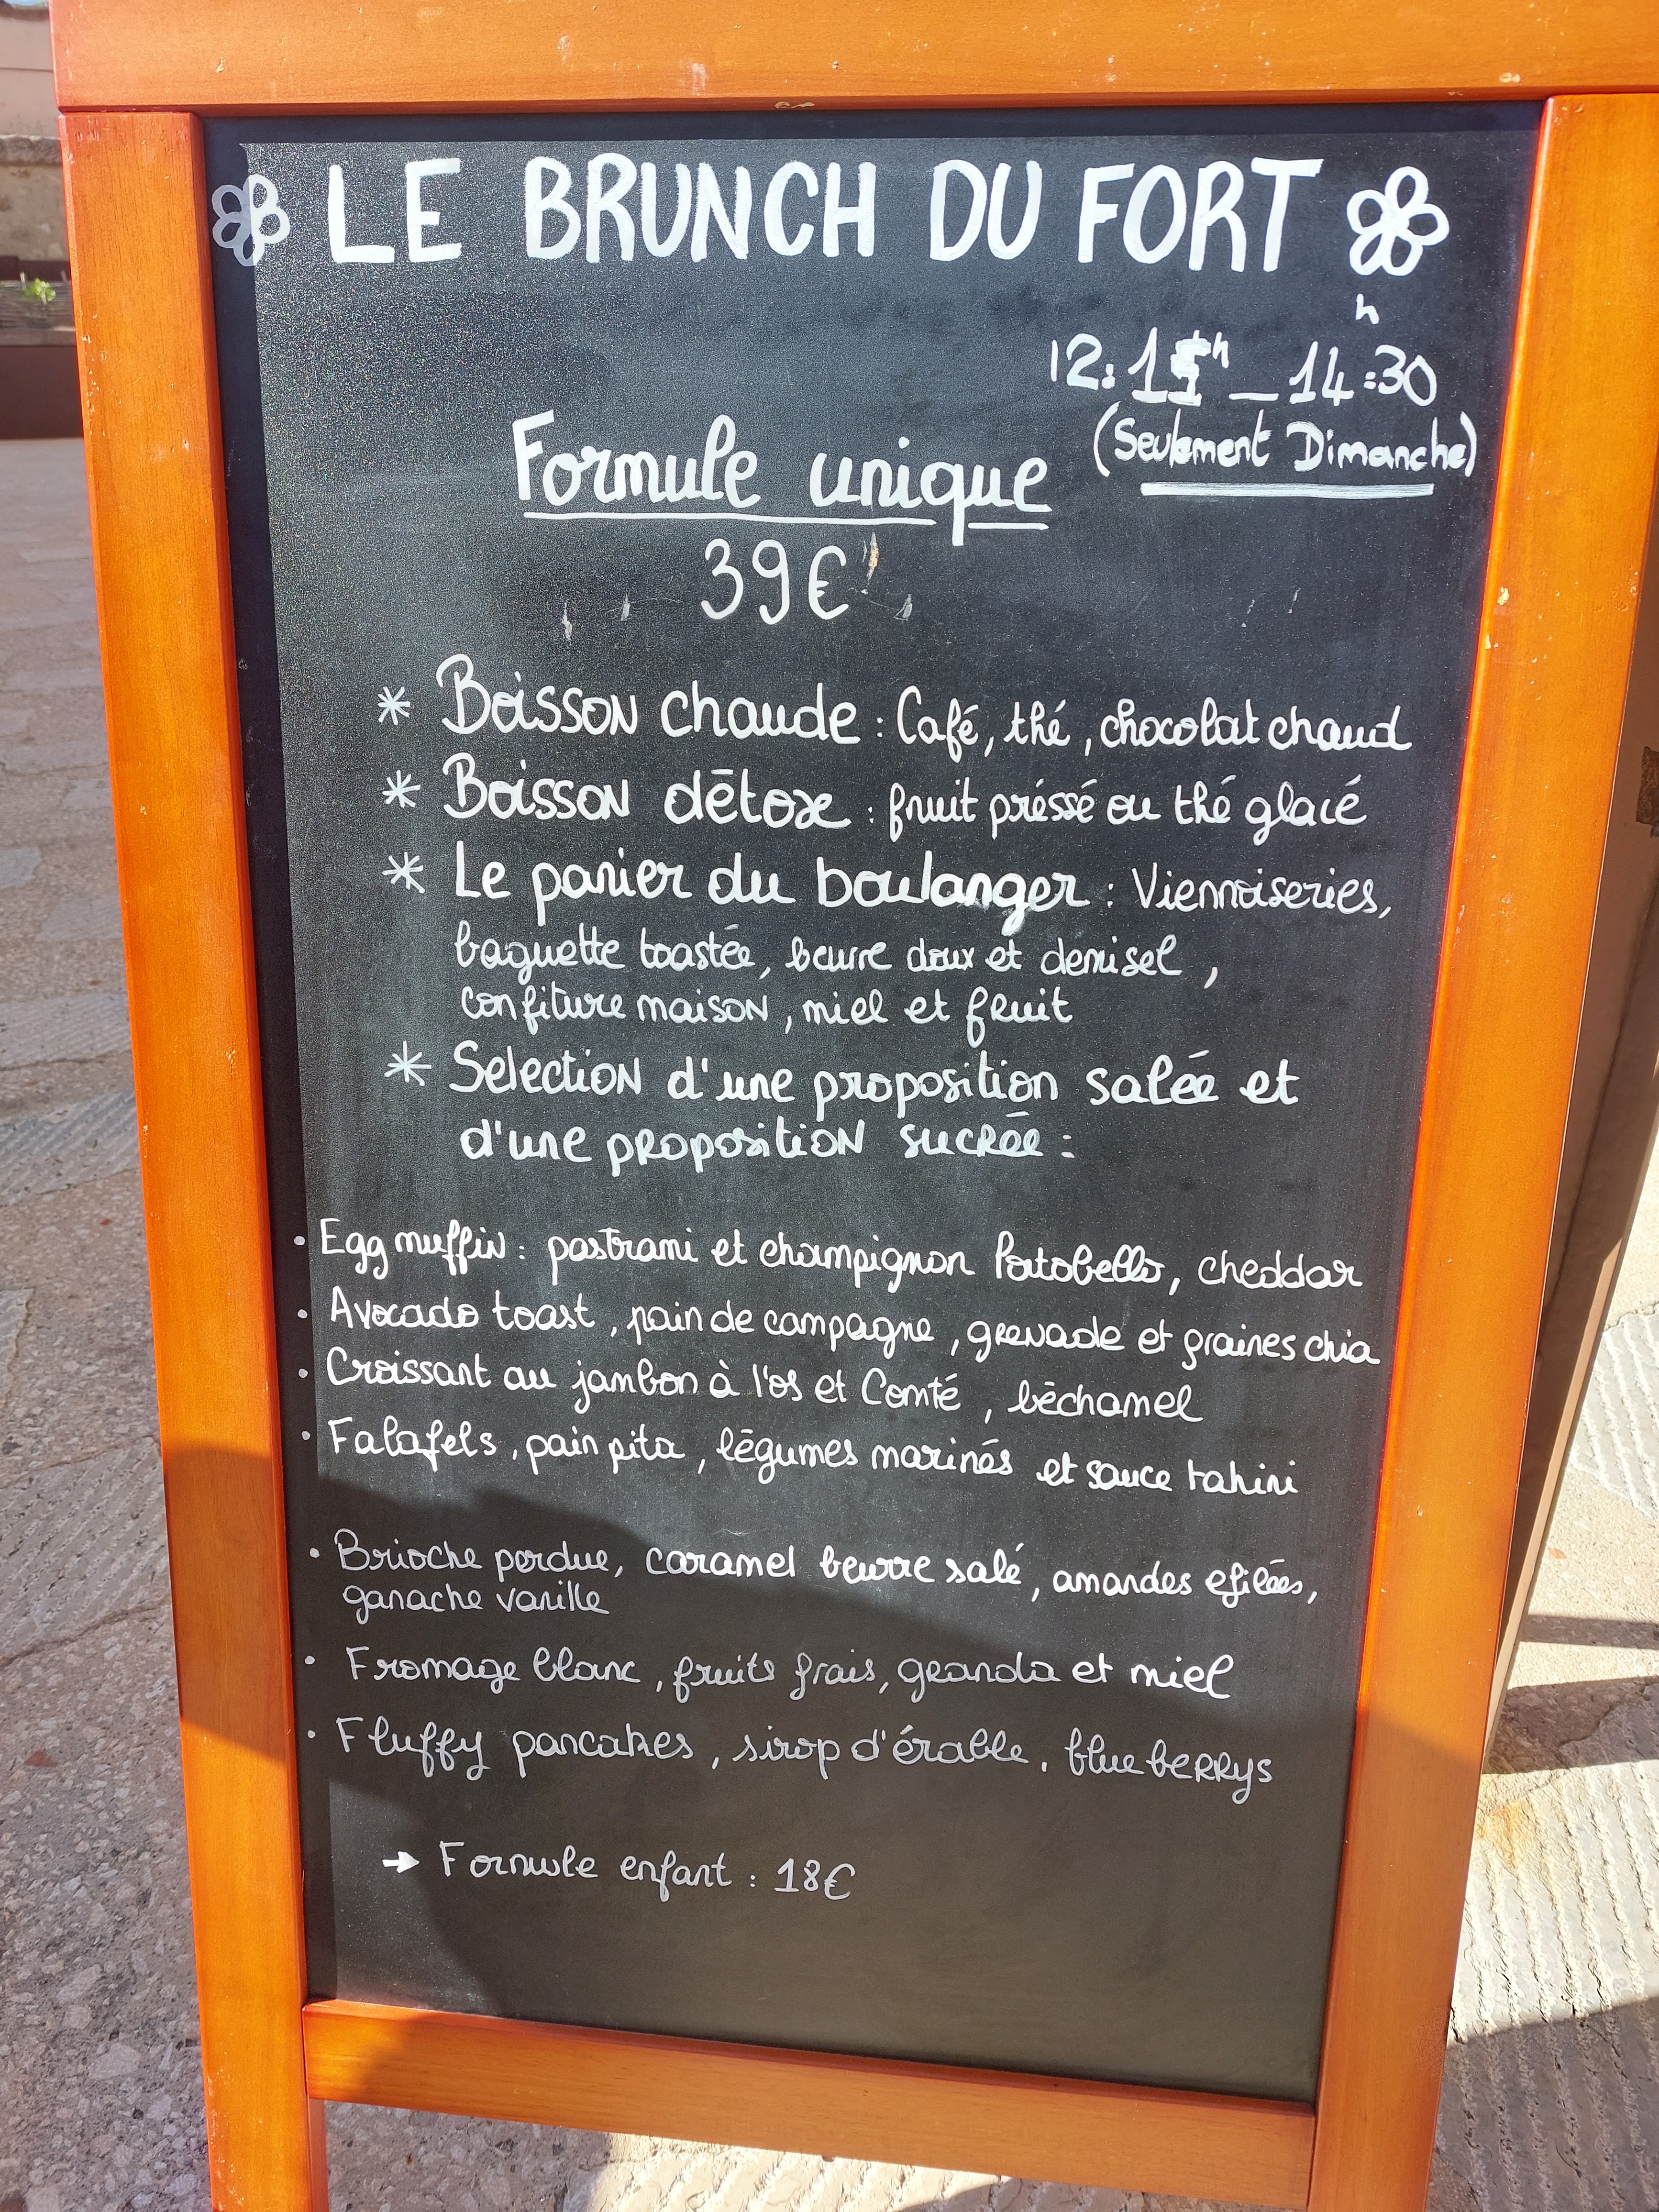 LE BRUNCH DU FORT
h
12:15h _ 14:30
(Seulement Dimanche)
Formule unique
39€
* Boisson chaude : Café, thé, chocolat chaud
* Boisson détox : fruit préssé ou thé glacé
* Le panier du boulanger : Viennoiseries,
baguette toastée, beurre doux et demisel,
confiture maison, miel et fruit
* Selection d'une proposition salée et
d'une proposition sucrée :
• Egg muffin : pastrami et champignon Portobello, cheddar
• Avocado toast, pain de campagne, grenade et graines chia
• Croissant au jambon à l'os et Comté, béchamel
• Falafels, pain pita, légumes marinés et sauce tahini
• Brioche perdue, caramel beurre salé, amandes efilées,
ganache vanille
• Fromage blanc, fruits frais, geanola et miel
• Fluffy pancakes, sirop d'érable, blueberrys
→ Formule enfant : 18€